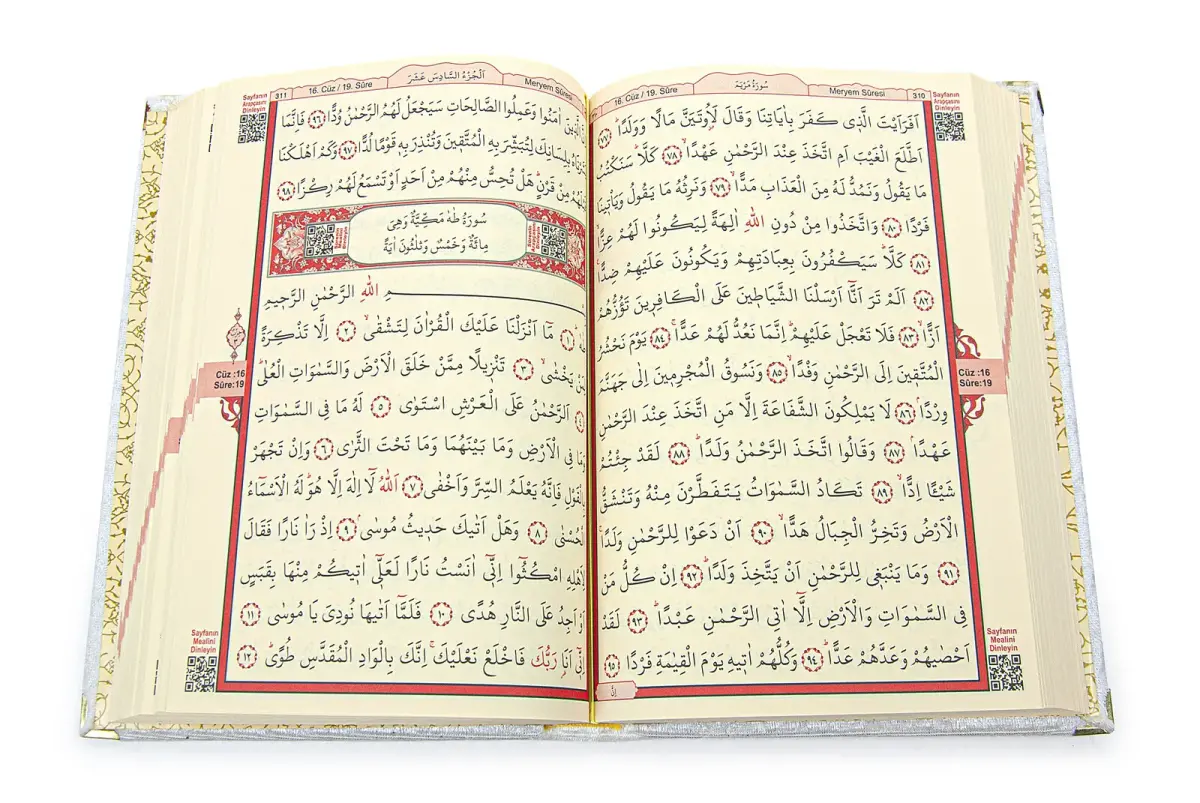 310
Meryem Sûresi
سُورَةُ مَرْيَمَ
16. Cüz / 19. Sûre
Sayfanın
Arapçasını
Dinleyin
اَفَرَاَيْتَ الَّذ۪ي كَفَرَ بِاٰيَاتِنَا وَقَالَ لَاُو۫تَيَنَّ مَالًا وَوَلَدًاۜ ﴿٧٧﴾
اَطَّلَعَ الْغَيْبَ اَمِ اتَّخَذَ عِنْدَ الرَّحْمٰنِ عَهْدًاۙ ﴿٧٨﴾ كَلَّاۜ سَنَكْتُبُ
مَا يَقُولُ وَنَمُدُّ لَهُ مِنَ الْعَذَابِ مَدًّاۙ ﴿٧٩﴾ وَنَرِثُهُ مَا يَقُولُ وَيَأْت۪ينَا
فَرْدًا ﴿٨٠﴾ وَاتَّخَذُوا مِنْ دُونِ اللّٰهِ اٰلِهَةً لِيَكُونُوا لَهُمْ عِزًّاۙ
﴿٨١﴾ كَلَّاۜ سَيَكْفُرُونَ بِعِبَادَتِهِمْ وَيَكُونُونَ عَلَيْهِمْ ضِدًّا۟
﴿٨٢﴾ اَلَمْ تَرَ اَنَّٓا اَرْسَلْنَا الشَّيَاط۪ينَ عَلَى الْكَافِر۪ينَ تَؤُزُّهُمْ
اَزًّاۙ ﴿٨٣﴾ فَلَا تَعْجَلْ عَلَيْهِمْۜ اِنَّمَا نَعُدُّ لَهُمْ عَدًّاۚ ﴿٨٤﴾ يَوْمَ نَحْشُرُ
الْمُتَّق۪ينَ اِلَى الرَّحْمٰنِ وَفْدًاۙ ﴿٨٥﴾ وَنَسُوقُ الْمُجْرِم۪ينَ اِلٰى جَهَنَّمَ
وِرْدًاۢ ﴿٨٦﴾ لَا يَمْلِكُونَ الشَّفَاعَةَ اِلَّا مَنِ اتَّخَذَ عِنْدَ الرَّحْمٰنِ
عَهْدًاۢ ﴿٨٧﴾ وَقَالُوا اتَّخَذَ الرَّحْمٰنُ وَلَدًاۜ ﴿٨٨﴾ لَقَدْ جِئْتُمْ
شَيْـًٔا اِدًّاۙ ﴿٨٩﴾ تَكَادُ السَّمٰوَاتُ يَتَفَطَّرْنَ مِنْهُ وَتَنْشَقُّ
الْاَرْضُ وَتَخِرُّ الْجِبَالُ هَدًّاۙ ﴿٩٠﴾ اَنْ دَعَوْا لِلرَّحْمٰنِ وَلَدًاۚ
﴿٩١﴾ وَمَا يَنْبَغ۪ي لِلرَّحْمٰنِ اَنْ يَتَّخِذَ وَلَدًاۜ ﴿٩٢﴾ اِنْ كُلُّ مَنْ
فِي السَّمٰوَاتِ وَالْاَرْضِ اِلَّٓا اٰتِي الرَّحْمٰنِ عَبْدًاۜ ﴿٩٣﴾ لَقَدْ
اَحْصٰيهُمْ وَعَدَّهُمْ عَدًّاۜ ﴿٩٤﴾ وَكُلُّهُمْ اٰت۪يهِ يَوْمَ الْقِيٰمَةِ فَرْدًا ﴿٩٥﴾
اِنَّ
Cüz :16
Sûre:19
Sayfanın
Mealini
Dinleyin
Meryem Sûresi
اَلْجُزْءُ السَّادِسَ عَشَرَ
16. Cüz / 19. Sûre
311
Sayfanın
Arapçasını
Dinleyin
الَّذ۪ينَ اٰمَنُوا وَعَمِلُوا الصَّالِحَاتِ سَيَجْعَلُ لَهُمُ الرَّحْمٰنُ وُدًّا ﴿٩٦﴾ فَاِنَّمَا
يَسَّرْنَاهُ بِلِسَانِكَ لِتُبَشِّرَ بِهِ الْمُتَّق۪ينَ وَتُنْذِرَ بِه۪ قَوْمًا لُدًّا ﴿٩٧﴾ وَكَمْ اَهْلَكْنَا
قَبْلَهُمْ مِنْ قَرْنٍۜ هَلْ تُحِسُّ مِنْهُمْ مِنْ اَحَدٍ اَوْ تَسْمَعُ لَهُمْ رِكْزًا ﴿٩٨﴾
سُورَةُ طٰهٰ مَكِّيَّةٌ وَهِيَ
مِائَةٌ وَخَمْسٌ وَثَلٰثُونَ اٰيَةً
بِسْمِ اللّٰهِ الرَّحْمٰنِ الرَّح۪يمِ
طٰهٰ ﴿١﴾ مَٓا اَنْزَلْنَا عَلَيْكَ الْقُرْاٰنَ لِتَشْقٰىۙ ﴿٢﴾ اِلَّا تَذْكِرَةً
لِمَنْ يَخْشٰىۙ ﴿٣﴾ تَنْز۪يلًا مِمَّنْ خَلَقَ الْاَرْضَ وَالسَّمٰوَاتِ الْعُلٰىۜ
﴿٤﴾ اَلرَّحْمٰنُ عَلَى الْعَرْشِ اسْتَوٰى ﴿٥﴾ لَهُ مَا فِي السَّمٰوَاتِ
وَمَا فِي الْاَرْضِ وَمَا بَيْنَهُمَا وَمَا تَحْتَ الثَّرٰى ﴿٦﴾ وَاِنْ تَجْهَرْ
بِالْقَوْلِ فَاِنَّهُ يَعْلَمُ السِّرَّ وَاَخْفٰى ﴿٧﴾ اَللّٰهُ لَٓا اِلٰهَ اِلَّا هُوَۜ لَهُ الْاَسْمَٓاءُ
الْحُسْنٰى ﴿٨﴾ وَهَلْ اَتٰيكَ حَد۪يثُ مُوسٰىۢ ﴿٩﴾ اِذْ رَاٰ نَارًا فَقَالَ
لِاَهْلِهِ امْكُثُٓوا اِنّ۪ٓي اٰنَسْتُ نَارًا لَعَلّ۪ٓي اٰت۪يكُمْ مِنْهَا بِقَبَسٍ
اَوْ اَجِدُ عَلَى النَّارِ هُدًى ﴿١٠﴾ فَلَمَّٓا اَتٰيهَا نُودِيَ يَا مُوسٰى ﴿١١﴾
اِنّ۪ٓي اَنَا۬ رَبُّكَ فَاخْلَعْ نَعْلَيْكَۚ اِنَّكَ بِالْوَادِ الْمُقَدَّسِ طُوًىۜ ﴿١٢﴾
Cüz :16
Sûre:19
Sayfanın
Mealini
Dinleyin